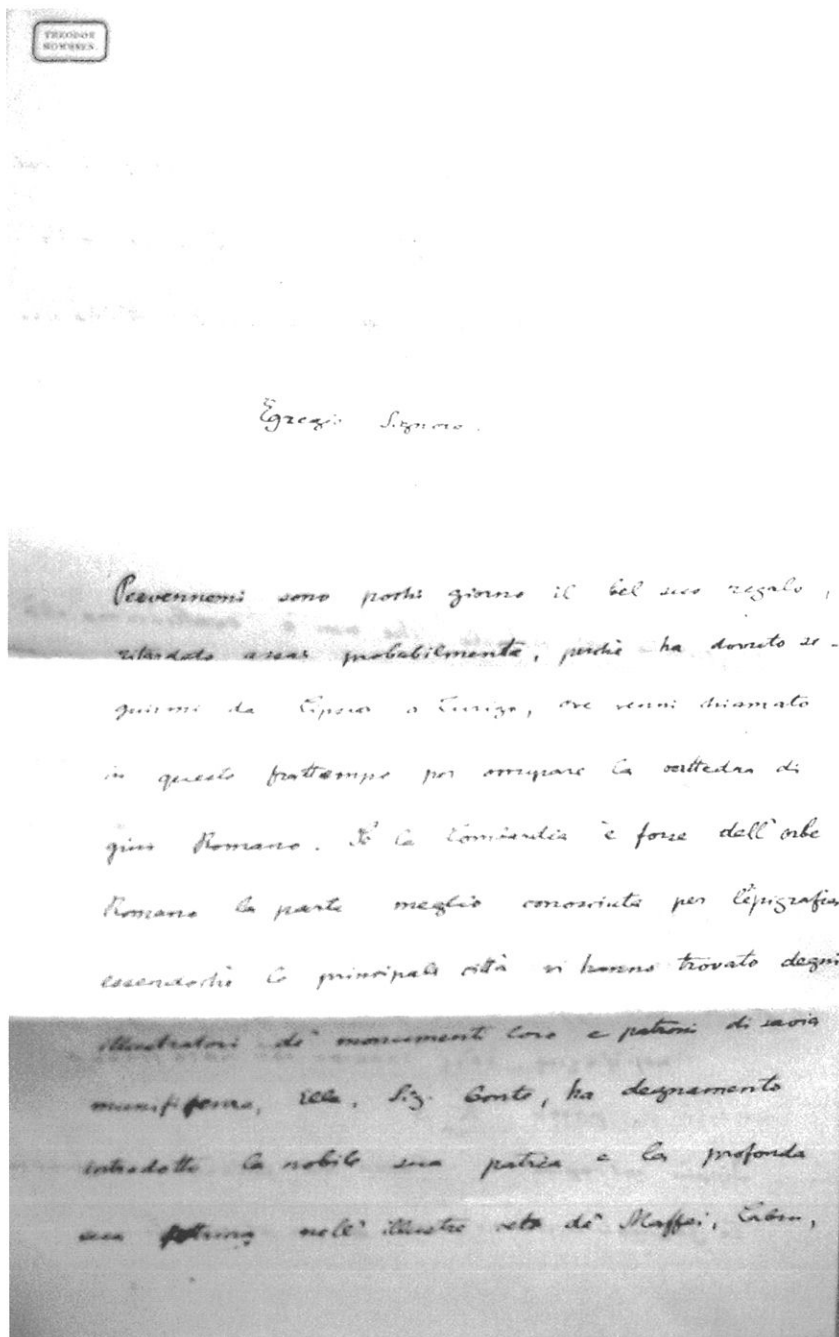 THEODOR
MOMMSEN
Egregio Signore.
Pervennemi sono pochi giorno il bel suo regalo,
ritardato assai probabilmente, perchè ha dovuto se-
guirmi da Lipsia a Zurigo, ove venni chiamato
in questo frattempo per occupare la cattedra di
gius Romano. Se la Lombardia è forse dell'orbe
Romano la parte meglio conosciuta per l'epigrafia
essendochè le principali città vi hanno trovato degni
illustratori de' monumenti loro e patroni di savia
munificenza, Ella, Sig. Conte, ha degnamente
introdotto la nobile sua patria e la profonda
sua nell' illustre de' Maffei,